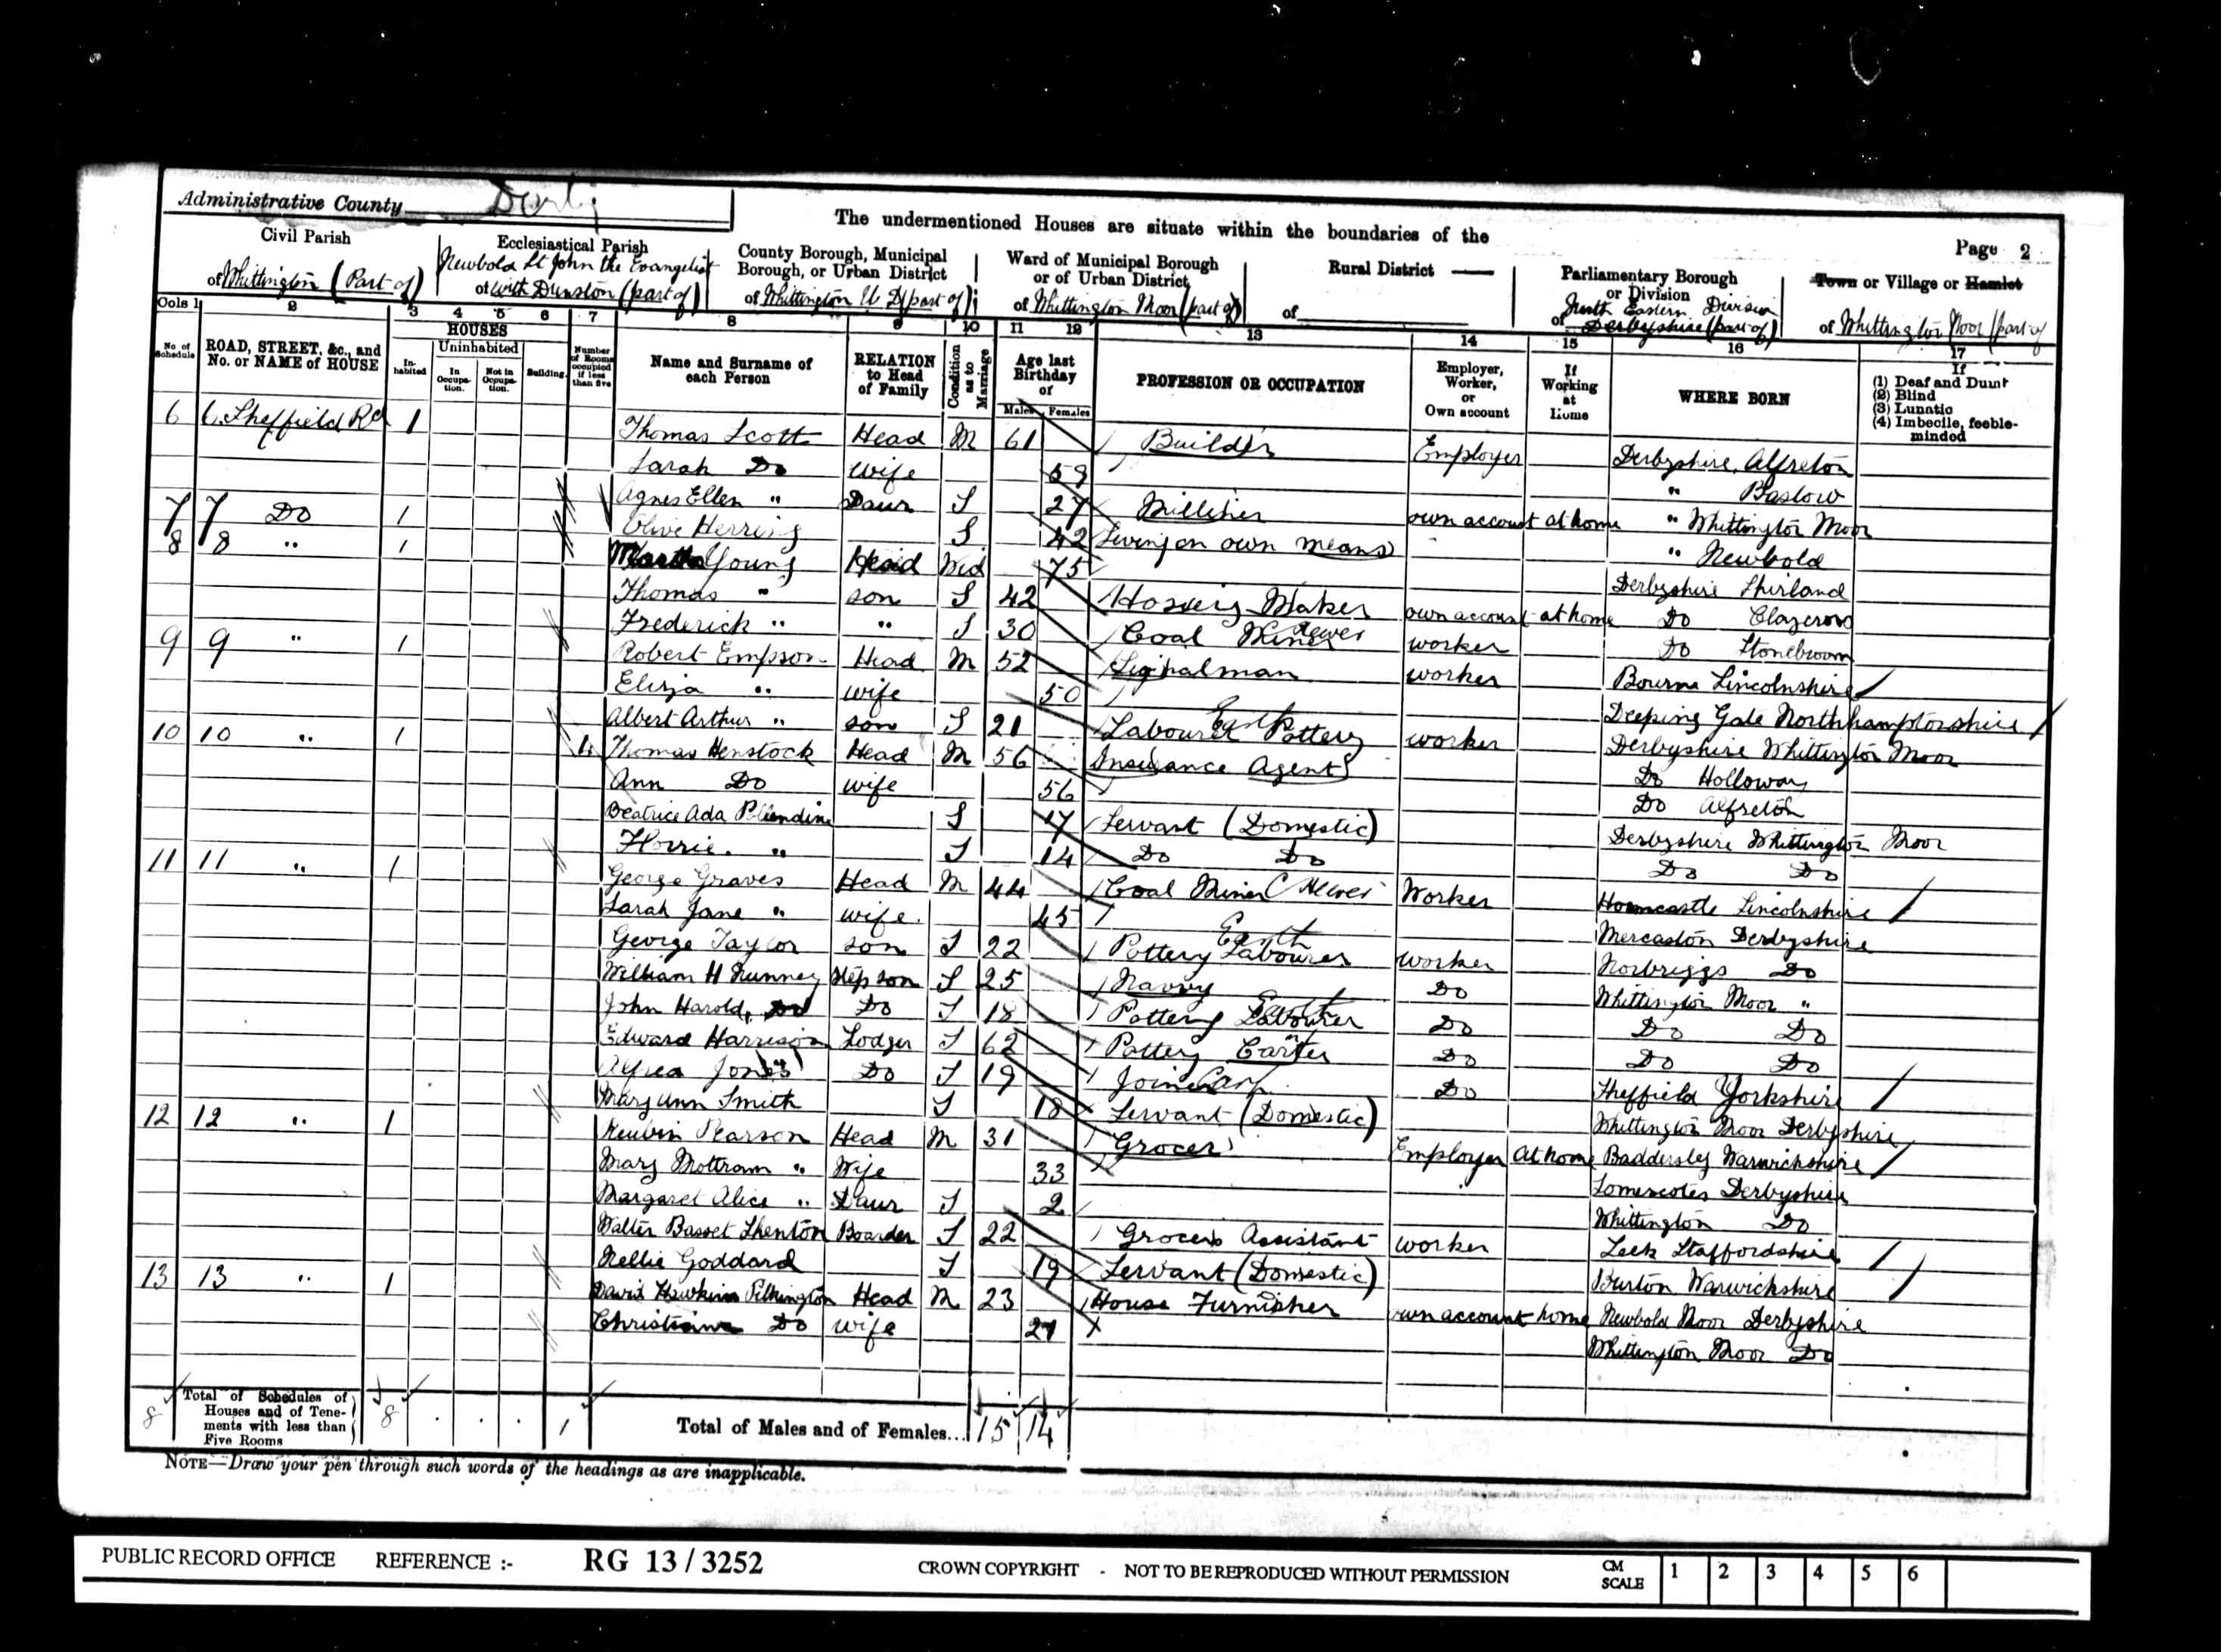 Administrative County Derby
The undermentioned Houses are situate within the boundaries of the
Page 2
Civil Parish
of Whittington (Part of)
Ecclesiastical Parish
Newbold St John the Evangelist
of with Dunston (part of)
County Borough, Municipal
Borough, or Urban District
of Whittington U D (part of)
Ward of Municipal Borough
or of Urban District
of Whittington Moor (part of)
Rural District —
of
Parliamentary Borough
or Division
North Eastern Division
of Derbyshire (part of)
Town or Village or Hamlet
of Whittington Moor (part of
Cols 1 2 3 4 5 6 7 8 9 10 11 12 13 14 15 16 17
No. of Schedule
ROAD, STREET, &c., and No. or NAME of HOUSE
HOUSES
In-habited
Uninhabited
In Occupa-tion.
Not in Occupa-tion.
Building.
Number of Rooms occupied if less than five
Name and Surname of each Person
RELATION to Head of Family
Condition as to Marriage
Age last Birthday of
Males Females
PROFESSION OR OCCUPATION
Employer, Worker, or Own account
If Working at Home
WHERE BORN
If
(1) Deaf and Dumb
(2) Blind
(3) Lunatic
(4) Imbecile, feeble-minded
6 6 Sheffield Rd 1 Thomas Scott Head M 61 Builder Employer Derbyshire, Alfreton
Sarah Do wife 59 " Baslow
Agnes Ellen " Daur S 27 Milliner own account at home " Whittington Moor
7 7 Do 1 Olive Herring S 42 Living on own means " Newbold
8 8 " 1 Martha Young Head Wid 75 Derbyshire Shirland
Thomas " son S 42 Hosiery Maker own account at home Do Claycross
Frederick " " S 30 Coal Miner Hewer worker Do Stonebroom
9 9 " 1 Robert Empson Head M 52 Signalman worker Bourne Lincolnshire
Eliza " wife 50 Deeping Gate Northhamptonshire
Albert Arthur " son S 21 Labourer Earth Pottery worker Derbyshire Whittington Moor
10 10 " 1 Thomas Henstock Head M 56 Insurance Agent Do Holloway
Ann Do wife 56 Do Alfreton
Beatrice Ada S 17 Servant (Domestic) Derbyshire Whittington Moor
Florrie " S 14 Do Do Do Do
11 11 " 1 George Graves Head M 44 Coal Miner (Hewer Worker Horncastle Lincolnshire
Sarah Jane " wife 45 Mercaston Derbyshire
George Taylor son S 22 Pottery Earth Labourer worker Norbriggs Do
William H Nunney Step son S 25 Navvy Do Whittington Moor "
John Harold, Do Do S 18 Pottery Earth Labourer Do Do Do
Edward Harrison Lodger S 62 Pottery Carter Do Do Do
Alfred Jones Do S 19 Joiner Carp Do Sheffield Yorkshire
Mary Ann Smith S 18 Servant (Domestic) Whittington Moor Derbyshire
12 12 " 1 Reubin Pearson Head M 31 Grocer Employer At home Baddersley Warwickshire
Mary Mottram " Wife 33 Somercotes Derbyshire
Margaret Alice " Daur S 2 Whittington Do
Walter Basset Shenton Boarder S 22 Grocers Assistant worker Leek Staffordshire
Nellie Goddard S 19 Servant (Domestic) Burton Warwickshire
13 13 " 1 David Hawkins Pilkington Head M 23 House Furnisher own account home Newbold Moor Derbyshire
Do wife 21 Whittington Moor Do
8 Total of Schedules of Houses and of Tene-ments with less than Five Rooms 8 1 Total of Males and of Females... 15 14
NOTE—Draw your pen through such words of the headings as are inapplicable.
PUBLIC RECORD OFFICE REFERENCE :- RG 13 / 3252 CROWN COPYRIGHT - NOT TO BE REPRODUCED WITHOUT PERMISSION CM SCALE 1 2 3 4 5 6